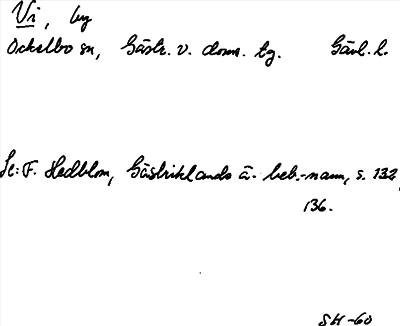 Vi, by
Ockelbo sn, Gästr. v. doms. tg. Gävl. l.
Se: F. Hedblom, Gästriklands ä. beb.-namn, s. 132,
136.
SH-60